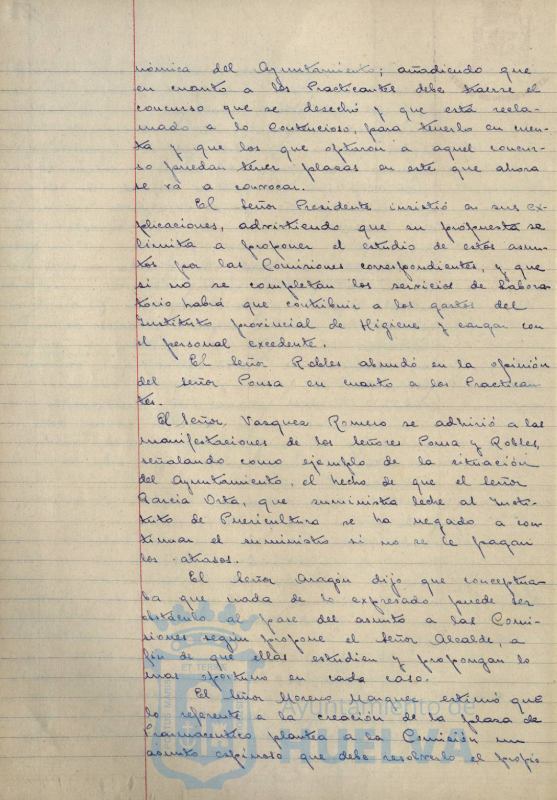 nómica del Ayuntamiento; añadiendo que
en cuanto a los Practicantes debe traerse el
concurso que se desechó y que está recla-
mado a lo Contencioso, para tenerlo en cuen-
ta y que los que optaron a aquel concur-
so puedan tener plazas en este que ahora
se va a convocar.
El Señor Presidente insistió en sus ex-
plicaciones, advirtiendo que su propuesta se
limita a proponer el estudio de estos asun-
tos por las Comisiones correspondientes, y que
si no se completan los servicios de Labora-
torio habrá que contribuir a los gastos del
Instituto provincial de Higiene y cargar con
el personal excedente.
El Señor Robles abundó en la opinión
del Señor Ponsa en cuanto a los Practican-
tes.
El Señor Vasquez Romero se adhirió a las
manifestaciones de los Señores Ponsa y Robles,
señalando como ejemplo de la situación
del Ayuntamiento, el hecho de que el Señor
Garcia Orta, que suministra leche al Insti-
tuto de Puericultura se ha negado a con-
tinuar el suministro si no se le pagan
los atrasos.
El Señor Aragón dijo que conceptua-
ba que nada de lo expresado puede ser
obstáculo al pase del asunto a las Comi-
siones segun propone el Señor Alcalde, a
fin de que ellas estudien y propongan lo
mas oportuno en cada caso.
El Señor Moreno Marquez estimó que
lo referente a la creación de la plaza de
Farmaceutico plantea a la Comisión un
asunto espinoso que debe resolverlo el propio
Ayuntamiento de
HUELVA